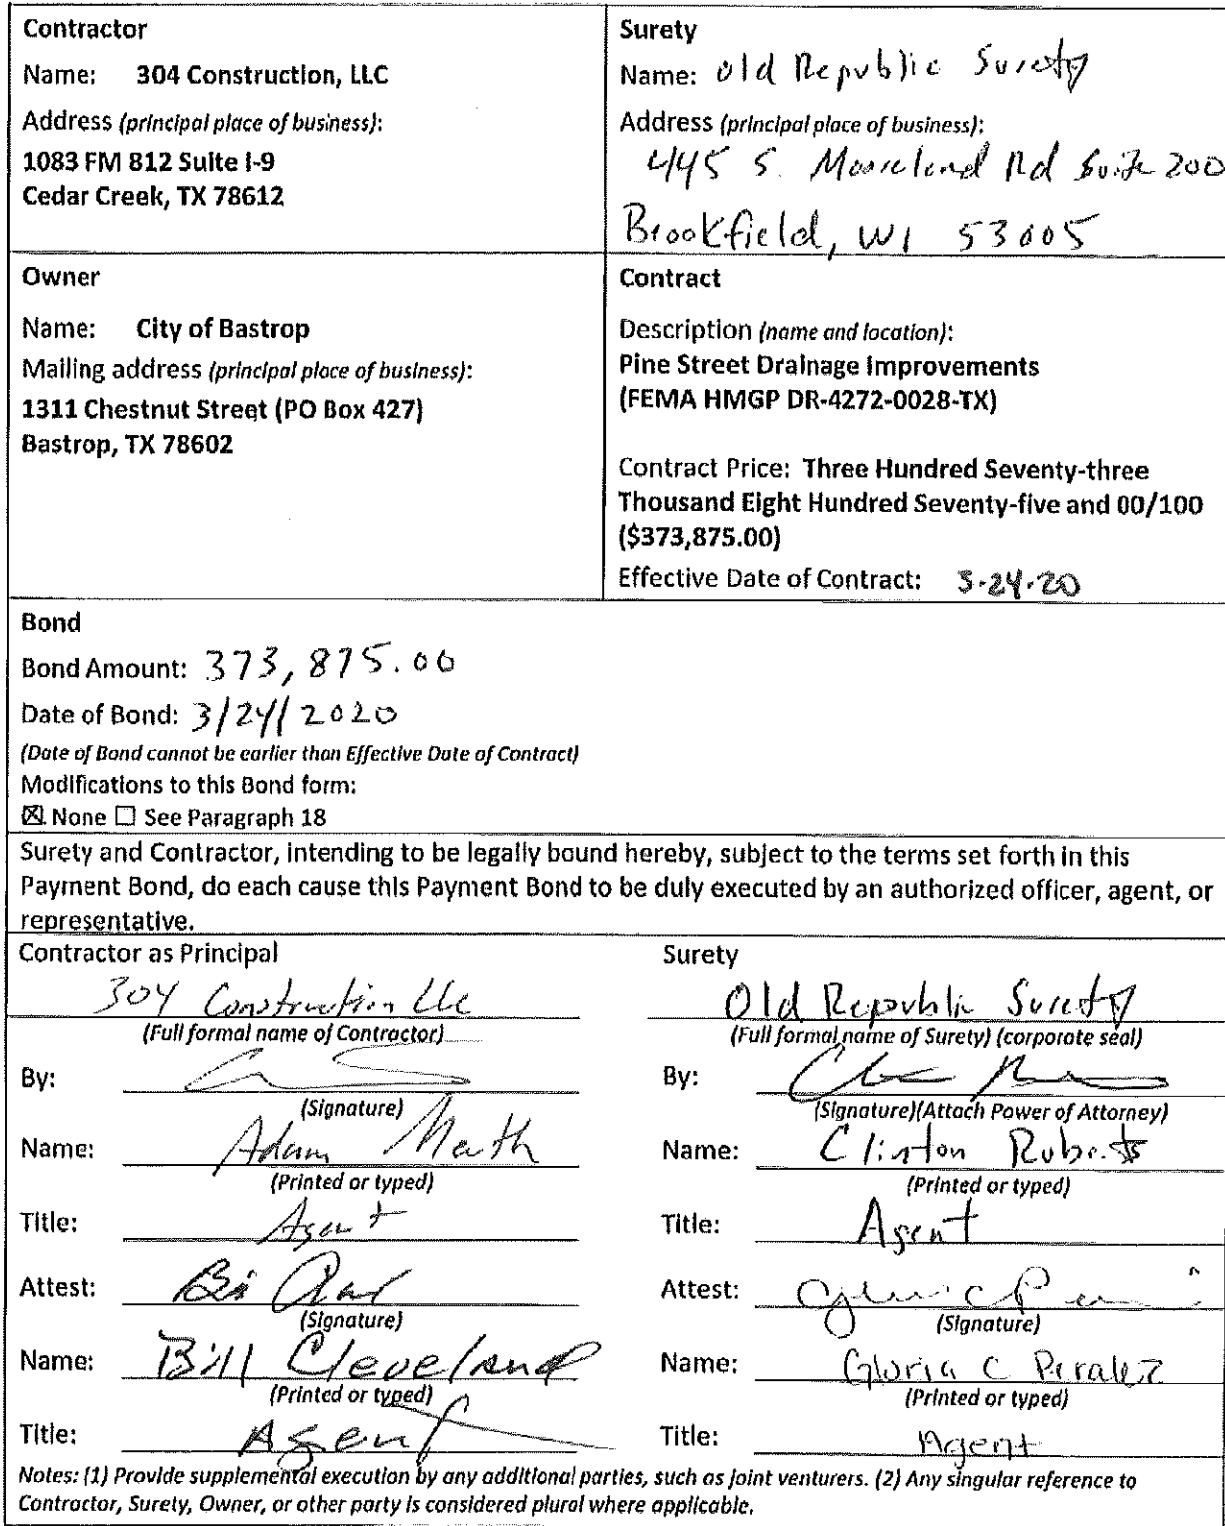 Contractor
Name: 304 Construction, LLC
Address (principal place of business):
1083 FM 812 Suite I-9
Cedar Creek, TX 78612
Surety
Name: Old Republic Surety
Address (principal place of business):
445 S. Mooreland Rd Suite 200
Brookfield, WI 53005
Owner
Name: City of Bastrop
Mailing address (principal place of business):
1311 Chestnut Street (PO Box 427)
Bastrop, TX 78602
Contract
Description (name and location):
Pine Street Drainage Improvements
(FEMA HMGP DR-4272-0028-TX)
Contract Price: Three Hundred Seventy-three
Thousand Eight Hundred Seventy-five and 00/100
($373,875.00)
Effective Date of Contract: 3-24-20
Bond
Bond Amount: 373,875.00
Date of Bond: 3/24/2020
(Date of Bond cannot be earlier than Effective Date of Contract)
Modifications to this Bond form:
☒ None ☐ See Paragraph 18
Surety and Contractor, intending to be legally bound hereby, subject to the terms set forth in this
Payment Bond, do each cause this Payment Bond to be duly executed by an authorized officer, agent, or
representative.
Contractor as Principal
304 Construction LLC
(Full formal name of Contractor)
By:
(Signature)
Name: Adam
(Printed or typed)
Title: Agent
Attest:
(Signature)
Name: Bill Cleveland
(Printed or typed)
Title: Agent
Surety
Old Republic Surety
(Full formal name of Surety) (corporate seal)
By:
(Signature)(Attach Power of Attorney)
Name: Clinton Roberts
(Printed or typed)
Title: Agent
Attest:
(Signature)
Name: Gloria C Peralez
(Printed or typed)
Title: Agent
Notes: (1) Provide supplemental execution by any additional parties, such as joint venturers. (2) Any singular reference to
Contractor, Surety, Owner, or other party is considered plural where applicable.